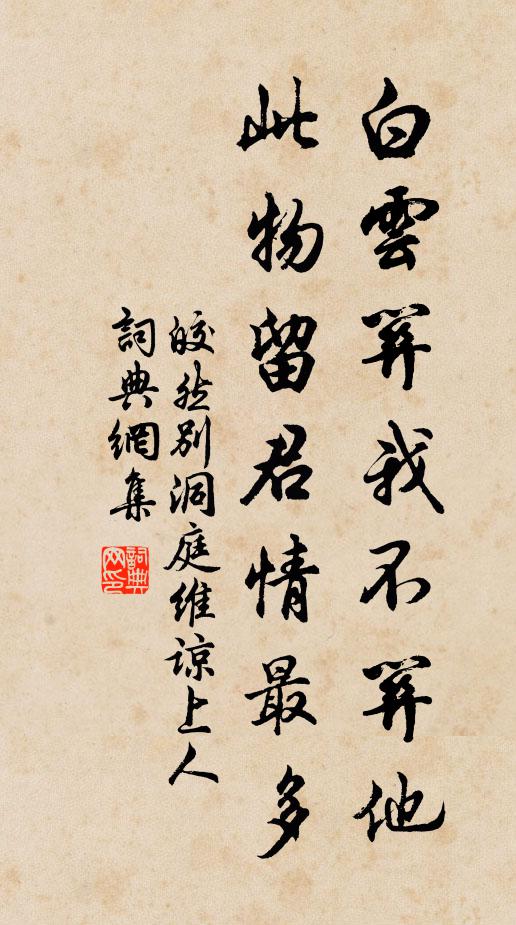 白雲關我不關他
此物留君情最多
皎然別洞庭維諒上人
詞典網集
詞典
网印